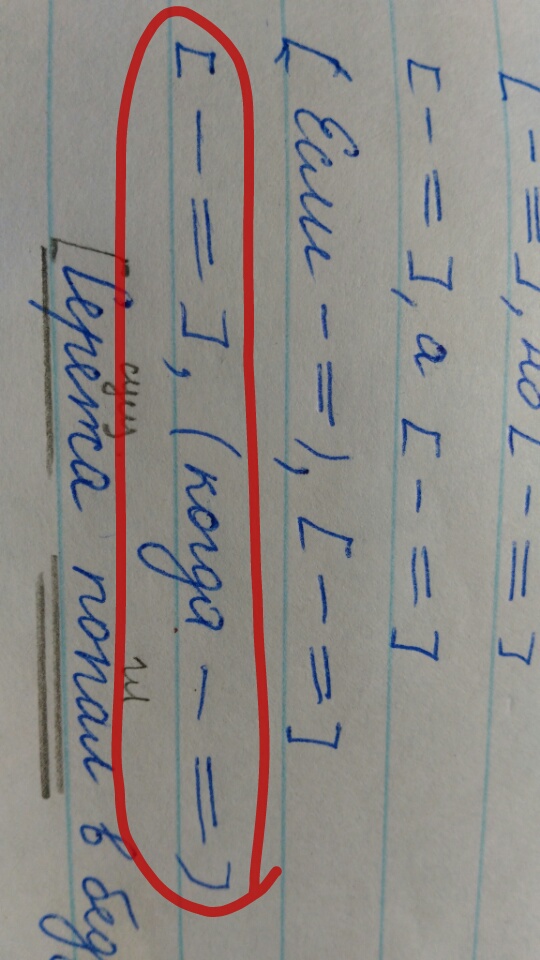 [ – = ], но [ – = ]
[ – = ], а [ – = ]
[ Если – = ), [ – = ]
[ – = ], (когда – = )
сущ. гл
Серёжа попал в бед